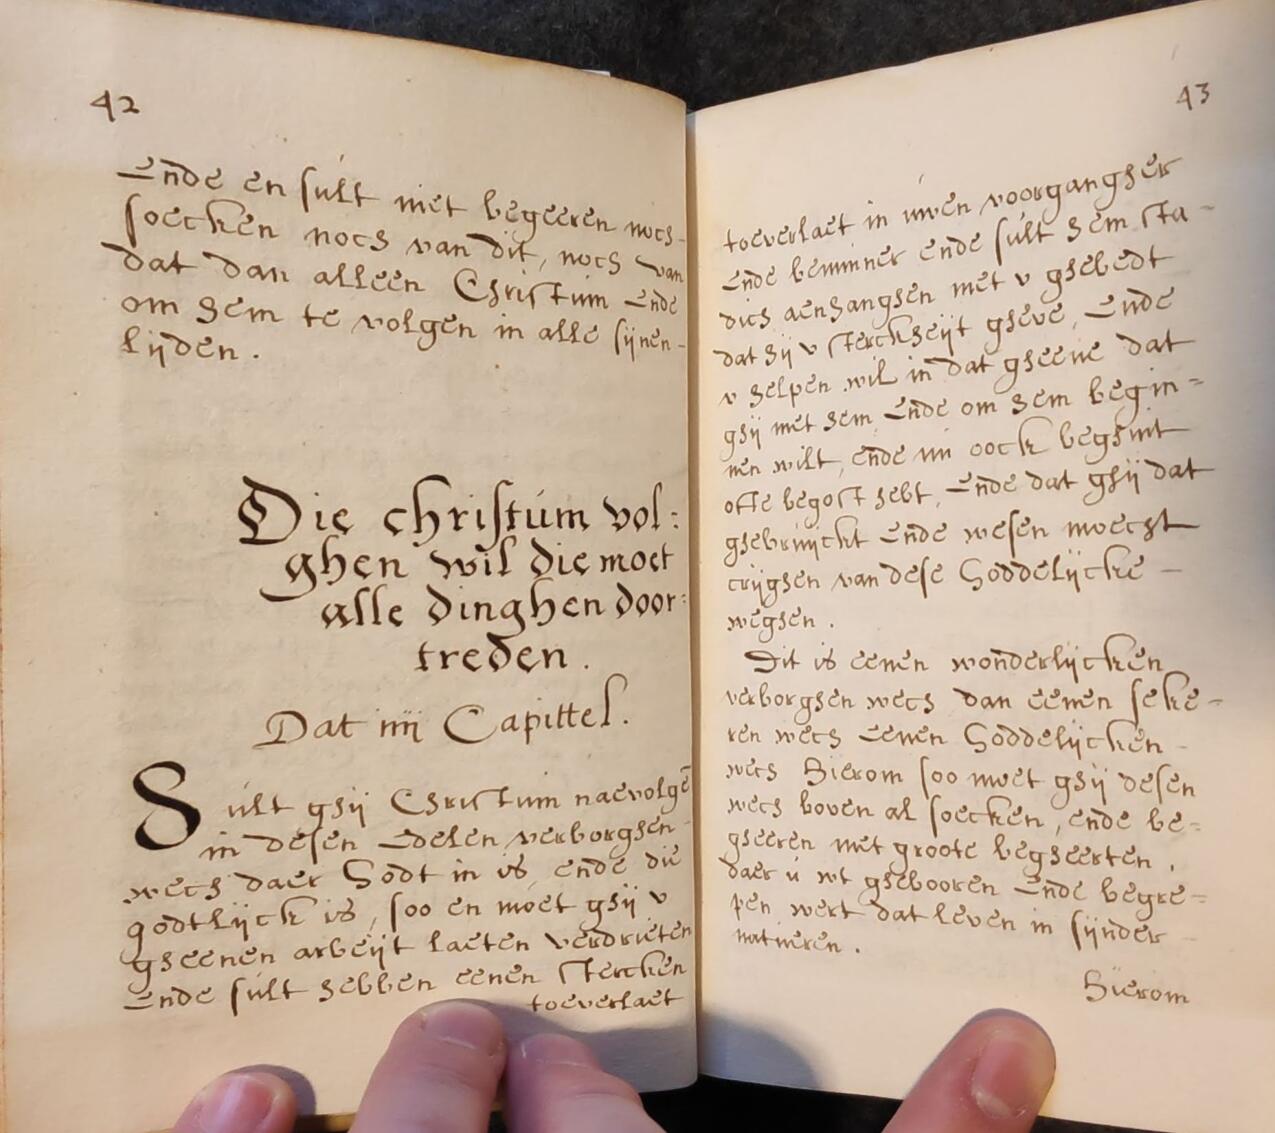 42
Ende en sult niet begeeren noch
soecken noch van dit, noch van
dat dan alleen Christum Ende
om hem te volgen in alle sijnen
lijden.
Die christum vol:
ghen wil die moet
alle dinghen door:
treden.
Dat iiij Capittel.
Sult ghij Christum naevolgē
in desen Edelen verborghen
wech daer Godt in is, ende die
godtlijck is, soo en moet ghij v
gheenen arbeijt laeten verdrieten
Ende sult hebben eenen stercken
toeverlaet
43
toeverlaet in uwen voorgangher
Ende beminner ende sult hem sta-
dich aenhanghen met v ghebedt
dat hij v sterckheijt gheve, Ende
v helpen wil in dat gheene dat
ghij met hem Ende om hem begin=
nen wilt, ende nu oock beghint
ofte begost hebt, Ende dat ghij dat
ghebruijckt Ende wesen moecht
crijghen van dese Goddelijcke
weghen.
Dit is eenen wonderlijcken
verborghen wech dan eenen seke=
ren wech Eenen Goddelijcken
wech Hierom soo moet ghij desen
wech boven al soecken, ende be=
gheeren met groote begheerten,
daer ú wt ghebooren Ende begre=
pen wert dat leven in sijnder
natueren.
Hierom